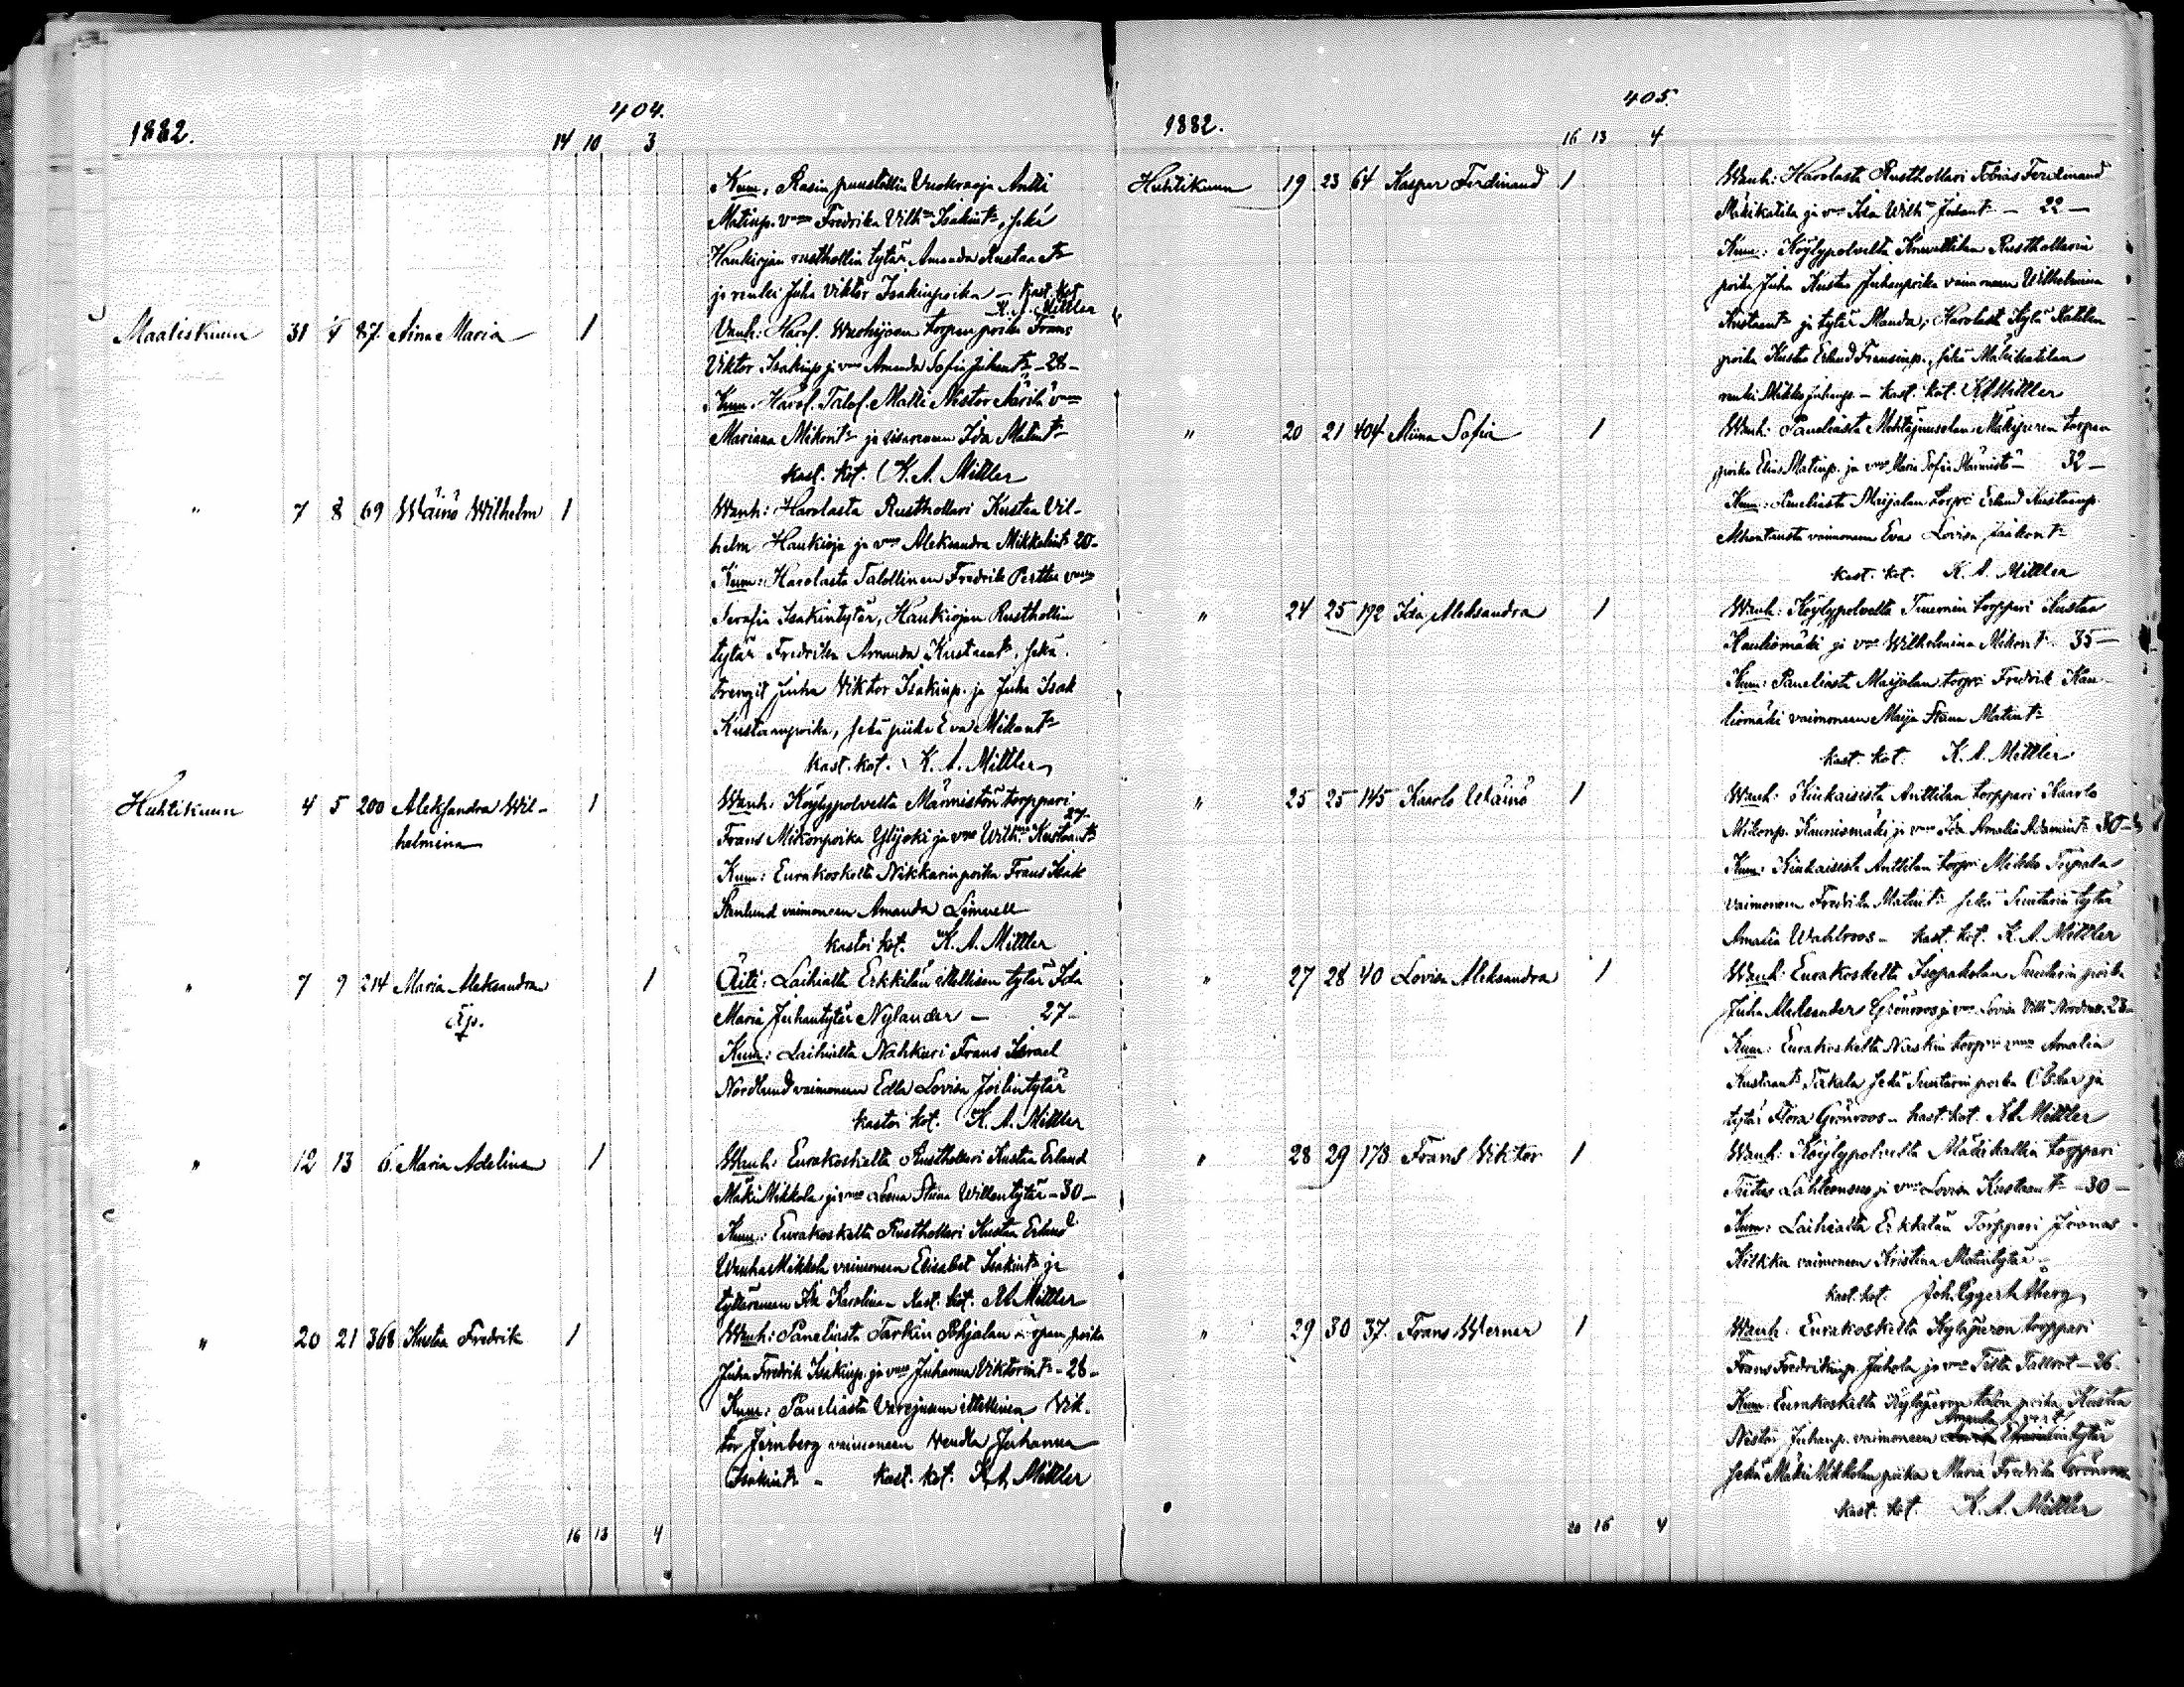 404.
1882.
14 10 3
Kum: Rasin puustellin Vuokraaja Antti
Matinp. vmo Fredrika Vilh:na Isakint:r, sekä
Haukiojan rusthollin tytär Amanda Kustaant:r
ja renki Juha Viktor Isakinpoika — Kast. kot.
K. A. Mittler
Maaliskuun 31 4 87. Aina Maria 1 Vanh: Harol. torpan poika Frans
Viktor Isakinp ja vmo Amanda Sofia Juhant:r — 28 —
Kum: Harol. Talol. Matti Nestor vmo
Mariana Mikont:r ja sisarensa Ida Matint:r
kast. kot. K. A. Mittler
" 7 8 69 Wäinö Wilhelm 1 Wanh: Harolasta Rusthollari Kustaa Vil-
helm Haukioja ja vmo Aleksandra Mikkelint:r 20 —
Kum: Harolasta Talollinen Fredrik Perttu vmo
Serafia Isakintytär, Haukiojan Rusthollin
tytär Fredrika Amanda Kustaant:r, sekä
trengit Juha Viktor Isakinp. ja Juha Isak
Kustaanpoika, sekä piika Eva Mikont:r
kast. kot. K. A. Mittler
Huhtikuun 4 5 200 Aleksandra Wil- 1 Wanh: Köylypolvelta Männistön torppari
helmina Frans Mikonpoika Ylijoki ja vmo Wilh:na Kustaant:r 27 —
Kum: Eurakoskelta Nikkarin poika Frans Isak
Stenlund vaimoneen Amanda
kastoi kot. K. A. Mittler
" 7 9 214 Maria Aleksandra 1 Äiti: Laihialta Erkkilän itsellisen tytär Ida
Äp. Maria Juhantytär Nylander — 27 —
Kum: Laihialta Nahkuri Frans Israel
Nordlund vaimoneen Edla Lovisa Joelintytär
kastoi kot. K. A. Mittler
" 12 13 6. Maria Adelina 1 Wanh: Eurakoskelta Rusthollari Kustaa Erland
Mäki Mikkola ja vmo Leena Stiina Willentytär — 30 —
Kum: Eurakoskelta Rusthollari Kustaa Erland
Wanha Mikkola vaimoneen Elisabet Isakint:r ja
tyttärensä Ida Karolina — Kast. kot. K. A. Mittler
" 20 21 368 Kustaa Fredrik 1 Wanh: Paneliasta Tarkin Pohjalan torpan poika
Juha Fredrik Isakinp. ja vmo Juhanna Viktorint:r — 28 —
Kum: Paneliasta itsellinen Vik-
tor Jernberg vaimoneen Vendla Juhanna
Isakint:r — Kast. kot. K. A. Mittler
16 13 4
405.
1882.
16 13 4
Huhtikuun 19 23 64 Kasper Ferdinand 1 Wanh: Harolasta Rusthollari Tobias Ferdinand
Mäkikatila ja vmo Ida Wilh:na Juhant:r — 22 —
Kum: Köylypolvelta Rusthollarin
poika Juha Kustaa Juhanpoika vaimoneen Wilhelmina
Kustaant:r ja tytär Manda, Harolasta Kylä Katilan
poika Kustaa Erland Fransinp., sekä Mäkikatilan
renki Mikko Juhanp. — kast. kot. K. A. Mittler
" 20 21 404 Miina Sofia 1 Wanh: Paneliasta Mäkijuren torpan
poika Elias Matinp. ja vmo Maria Sofia Männistö — 32 —
Kum: Paneliasta Maijalan torpri Erland Kustaanp.
vaimoneen Eva Lovisa Jaakont:r
kast. kot. K. A. Mittler
" 24 25 192 Ida Aleksandra 1 Wanh: Köylypolvelta Tuomin torppari Kustaa
Kauliomäki ja vmo Wilhelmina Mikont:r 35 —
Kum: Paneliasta Maijalan torpri Fredrik Kau-
liomäki vaimoneen Maija Stiina Matint:r
kast. kot. K. A. Mittler
" 25 25 145 Kaarlo Wäinö 1 Wanh: Kiukaisista Anttilan torppari Kaarlo
Mikonp. Kaunismäki ja vmo Ida Amalia Adamint:r 30 —
Kum: Kiukaisista Anttilan torpri Mikko
vaimoneen Fredrika Matint:r sekä Suntarin tytär
Amalia Wahlroos — kast. kot. K. A. Mittler
" 27 28 40 Lovisa Aleksandra 1 Wanh: Eurakoskelta Isopaholan Suntarin poika
Juha Aleksander Grönroos ja vmo Lovisa Vilh:na 23 —
Kum: Eurakoskelta torprin vmo Amalia
Kustaant:r sekä Suntarin poika Oskar ja
tytär Flora Grönroos — kast. kot. K. A. Mittler
" 28 29 178 Frans Viktor 1 Wanh: Köylypolvelta Mäkikallin torppari
Titus Lähteensuu ja vmo Lovisa Kustaant:r — 30 —
Kum: Laihialta Erkkilän Torppari Joonas
Kilkku vaimoneen Kristina Matintytär —
kast. kot. Joh. Eggert Åberg
" 29 30 37. Frans Werner 1 Wanh: Eurakoskelta Kyläjuron torppari
Frans Fredrikinp. Juhola ja vmo 26.
Kum: Eurakoskelta Kyläjuron talon poika Kustaa
Nestor Juhanp. vaimoneen Amanda
sekä Mäki Mikkolan piika Maria Fredrika Grönroos
kast. kot. K. A. Mittler
20 16 4